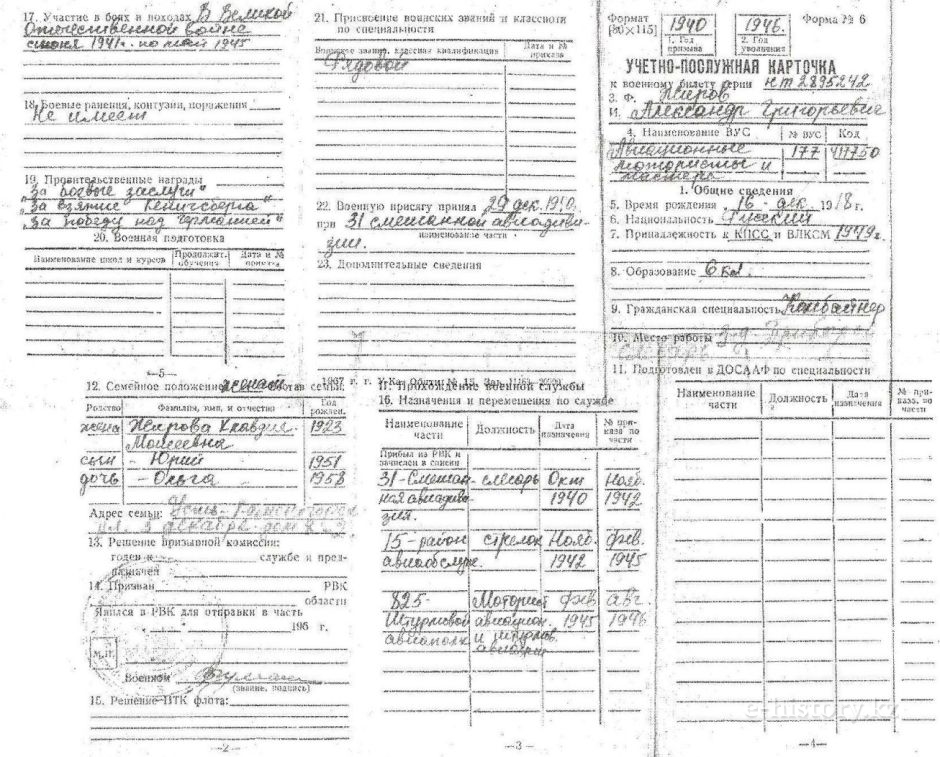 17. Участие в боях и походах В Великой
Отечественной войне
с июня 1941г. по май 1945
18. Боевые ранения, контузии, поражения
Не имеет
19. Правительственные награды
"За боевые заслуги"
"За взятие Кенигсберга"
"За победу над Германией"
20. Военная подготовка
Наименование школ и курсов
Продолжит. обучения
Дата и №
—5—
21. Присвоение воинских званий и классности
по специальности
Воинское звание, классная квалификация
Дата и №
приказа
Рядовой
22. Военную присягу принял 29 дек. 1940.
при 31 смешанной авиадиви-
наименование части
зии.
23. Дополнительные сведения
Формат
[80×115]
1940
1. Год
призыва
1946.
2. Год
увольнения
Форма № 6
УЧЕТНО-ПОСЛУЖНАЯ КАРТОЧКА
к военному билету серии НТ 2895242
3. Ф. Жиров
И. Александр Григорьевич
4. Наименование ВУС
№ ВУС
Код
Авиационные
мотористы и
мастера
177
1. Общие сведения
5. Время рождения 16 - дек. 1918г.
6. Национальность Русский
7. Принадлежность к КПСС и ВЛКСМ 1949г.
8. Образование 6 кл.
9. Гражданская специальность Комбайнер
10. Место работы
Слесарь
11. Подготовлен в ДОСААФ по специальности
12. Семейное положение женат состав семьи
Родство
Фамилия, имя, и отчество
Год
рожден.
жена Жирова Клавдия 1923
Моисеевна
сын - Юрий 1951
дочь - Ольга 1958
Адрес семьи: Усть-Каменогорск
ул. 3 декабря дом
13. Решение призывной комиссии:
годен к службе и пред-
назначен
14. Призван РВК
области
Явился в РВК для отправки в часть
195 г.
М.П.
Военком
(звание, подпись)
15. Решение ВТК флота:
—2—
1967 г.
II. Прохождение военной службы
16. Назначения и перемещения по службе
Наименование
части
Должность
Дата
назначения
№ при-
каза по
части
Прибыл из РВК и
зачислен в списки
31-Смешан- слесарь Окт Нояб.
ная авиадиви- 1940 1942
зия.
15-район стрелок Нояб. фев.
авиаобслуж. 1942 1945
825- Моторист фев авг.
Штурмовой авиацион. 1945 1946
авиаполк и штурмов.
—3—
Наименование
части
Должность
Дата
назначения
№ при-
каза, по
части
—4—
e-history.kz